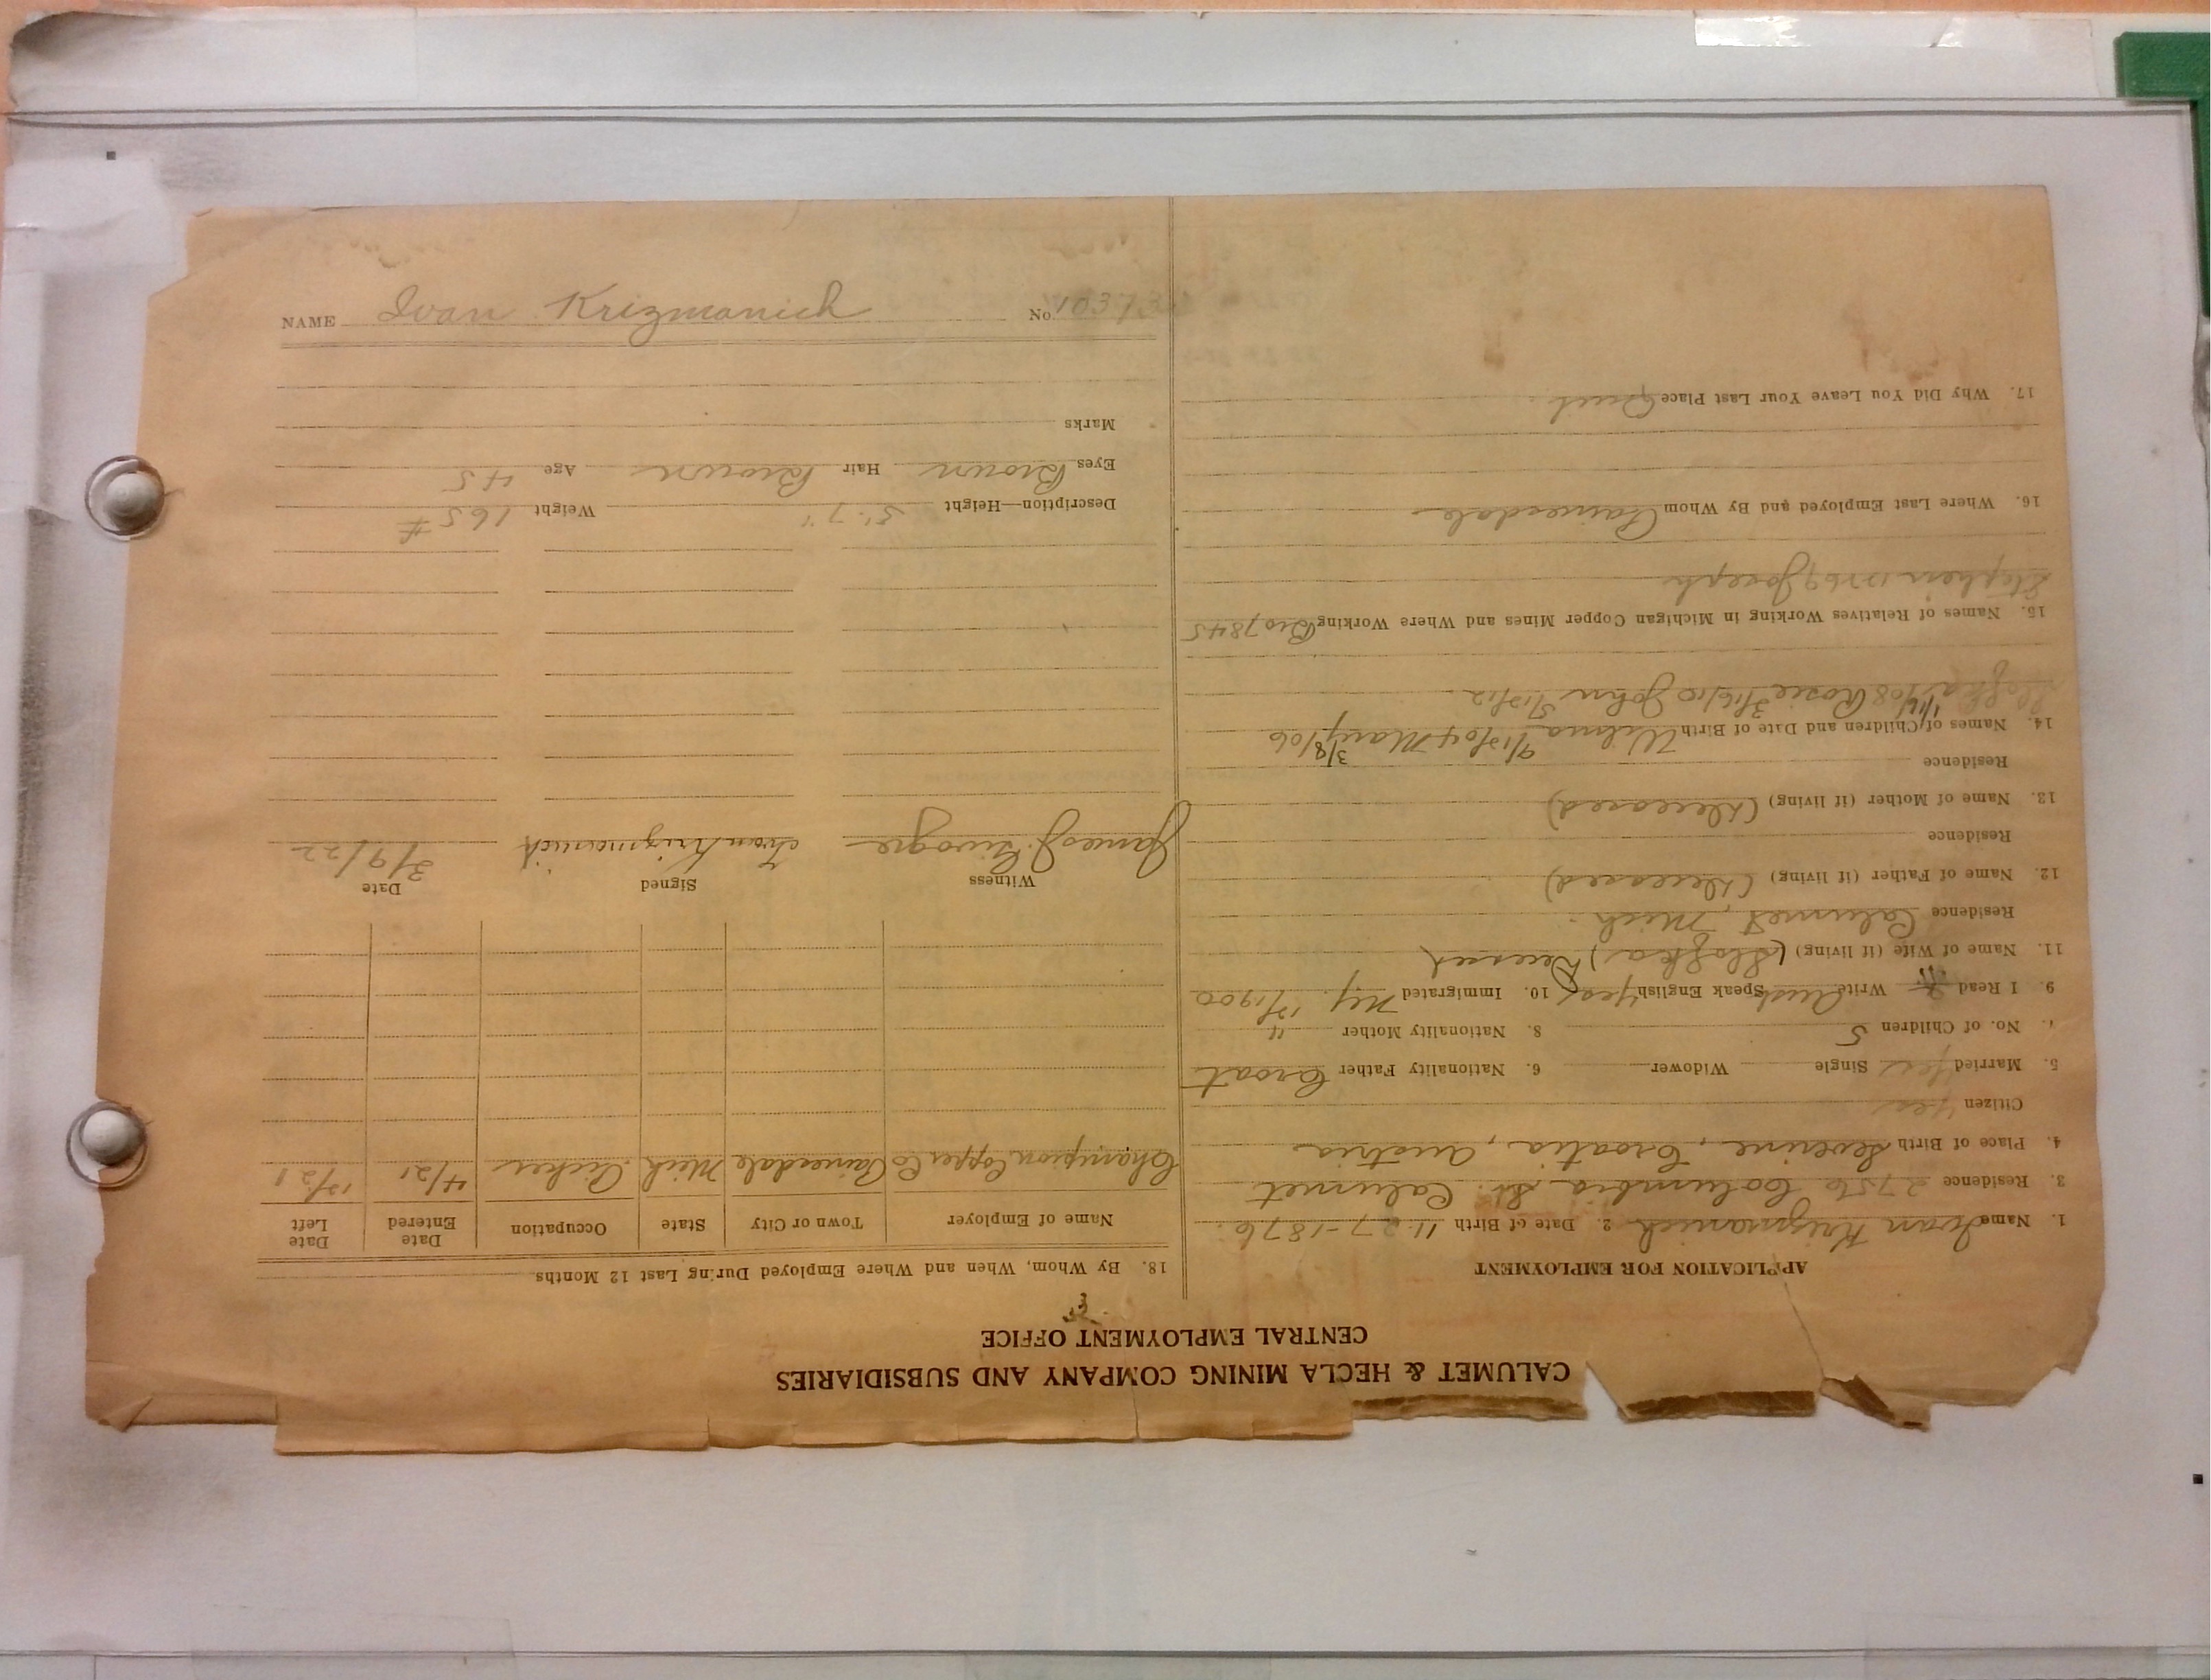 CALUMET & HECLA MINING COMPANY AND SUBSIDIARIES
CENTRAL EMPLOYMENT OFFICE
APPLICATION FOR EMPLOYMENT
1. Name Ivan Krizmanich 2. Date of Birth 11-27-1876.
3. Residence 2756 Columbia St. Calumet
4. Place of Birth Severine, Croatia, Austria
Citizen Yes
5. Married Yes Single Widower 6. Nationality Father Croat
7. No. of Children 5 8. Nationality Mother "
9. I Read Write Aust Speak English Yes 10. Immigrated N.Y. 12/1900
11. Name of Wife (if living) (Slofka) Deceased
Residence Calumet, Mich.
12. Name of Father (if living) (Deceased)
Residence
13. Name of Mother (if living) (Deceased)
Residence
14. Names of Children and Date of Birth Wilma 9/12/04 Mary 3/8/06
Slofka 1/16/08 Rosie 3/16/10 John 5/12/12
15. Names of Relatives Working in Michigan Copper Mines and Where Working Bro 7845
Stephen 12769 Joseph
16. Where Last Employed and By Whom Painesdale
17. Why Did You Leave Your Last Place Quit.
18. By Whom, When and Where Employed During Last 12 Months.
Name of Employer Town or City State Occupation Date Entered Date Left
Champion Copper Co Painesdale Mich. Picker 4/21 12/21
Witness Signed Date
James J. Ivan Krizmanich 3/9/22
Description—Height 5'.7" Weight 165#
Eyes Brown Hair Brown Age 45
Marks
NAME Ivan Krizmanich No.